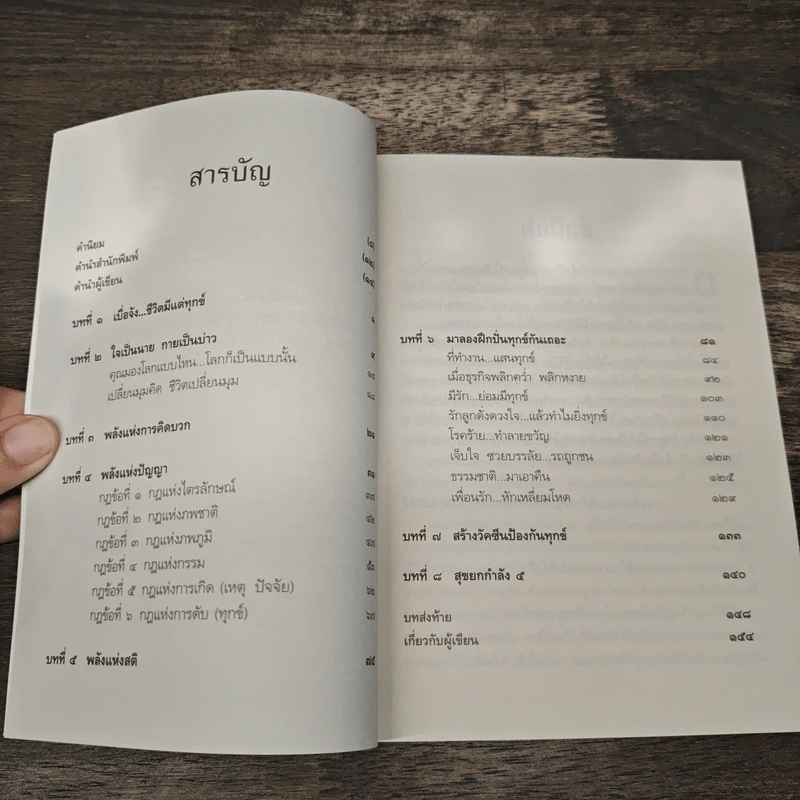 สารบัญ
คำนิยม (๘)
คำนำสำนักพิมพ์ (๑๒)
คำนำผู้เขียน
บทที่ ๑ เบื่อจัง...ชีวิตมีแต่ทุกข์ ๑
บทที่ ๒ ใจเป็นนาย กายเป็นบ่าว ๙
คุณมองโลกแบบไหน...โลกก็เป็นแบบนั้น ๑๔
เปลี่ยนมุมคิด ชีวิตเปลี่ยนมุม ๑๘
บทที่ ๓ พลังแห่งการคิดบวก ๒๑
บทที่ ๔ พลังแห่งปัญญา ๓๑
กฎข้อที่ ๑ กฎแห่งไตรลักษณ์ ๓๗
กฎข้อที่ ๒ กฎแห่งภพชาติ ๔๒
กฎข้อที่ ๓ กฎแห่งภพภูมิ ๔๗
กฎข้อที่ ๔ กฎแห่งกรรม ๕๓
กฎข้อที่ ๕ กฎแห่งการเกิด (เหตุ ปัจจัย) ๖๒
กฎข้อที่ ๖ กฎแห่งการดับ (ทุกข์) ๖๗
บทที่ ๕ พลังแห่งสติ ๗๕
บทที่ ๖ มาลองฝึกปั่นทุกข์กันเถอะ ๘๑
ที่ทำงาน...แสนทุกข์ ๘๔
เมื่อธุรกิจพลิกคว่ำ พลิกหงาย ๙๒
มีรัก...ย่อมมีทุกข์ ๑๐๓
รักลูกดั่งดวงใจ...แล้วทำไมยิ่งทุกข์ ๑๑๐
โรคร้าย...ทำลายขวัญ ๑๒๑
เจ็บใจ ซวยบรรลัย...รถถูกชน ๑๒๓
ธรรมชาติ...มาเอาคืน ๑๒๕
เพื่อนรัก...หักเหลี่ยมโหด ๑๒๙
บทที่ ๗ สร้างวัคซีนป้องกันทุกข์ ๑๓๓
บทที่ ๘ สุขยกกำลัง ๕ ๑๔๐
บทส่งท้าย ๑๔๘
เกี่ยวกับผู้เขียน ๑๕๔